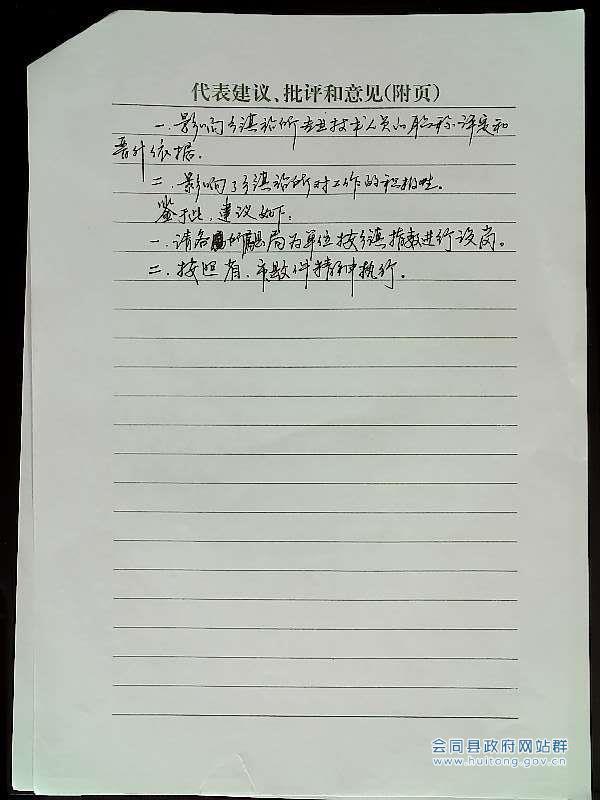 代表建议、批评和意见(附页)
一.影响乡镇站所专业技术人员的职称评定和
晋升依据.
二.影响了乡镇站所对工作的积极性.
鉴于此,建议如下:
一.请各 局为单位按乡镇指数进行设岗。
二.按照省、市 文件精神执行.
会同县政府网站群
www.huitong.gov.cn